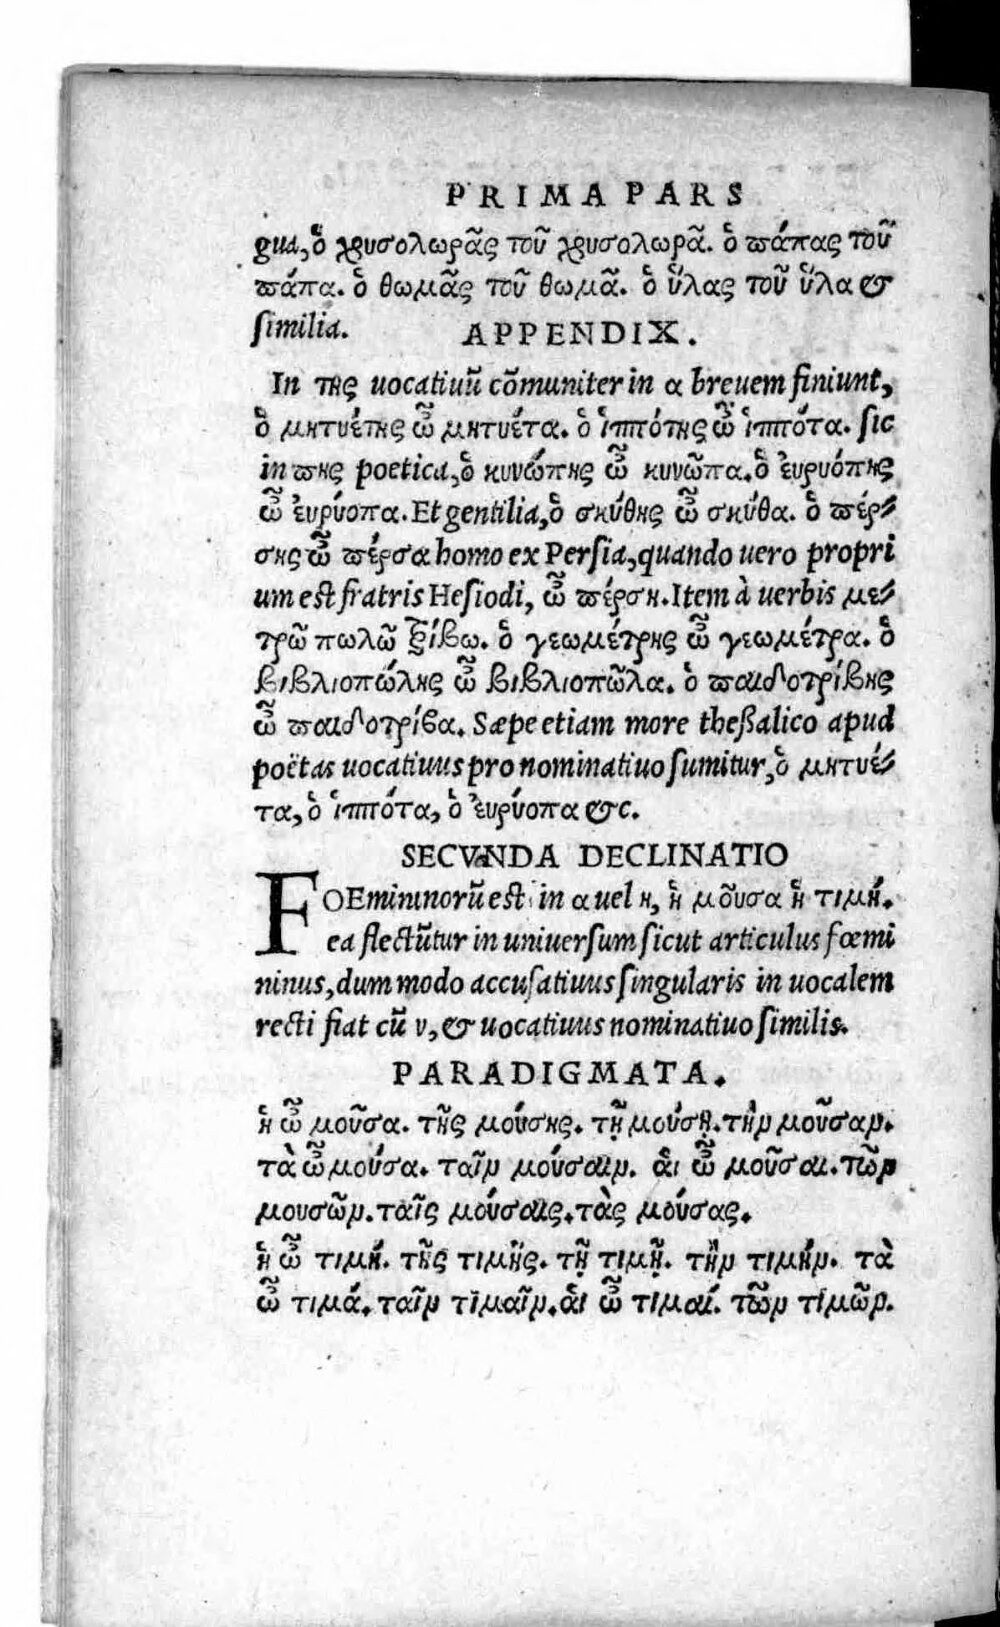 PRIMA PARS
gua, ὁ χρυσολωρᾶς τοῦ χρυσολωρᾶ. ὁ πάπας τοῦ
πάπα. ὁ θωμᾶς τοῦ θωμᾶ. ὁ ὕλας τοῦ ὕλα &
similia. APPENDIX.
In της uocatiuũ cõmuniter in α breuem finiunt,
ὁ μητιέτης ὦ μητιέτα. ὁ ἱππότης ὦ ἱππότα. sic
in πης poetica, ὁ κυνώπης ὦ κυνῶπα. ὁ ἐυρυόπης
ὦ ἐυρύοπα. Et gentilia, ὁ σκύθης ὦ σκύθα. ὁ πέρ-
σης ὦ πέρσα homo ex Persia, quando uero propri
um est fratris Hesiodi, ὦ πέρση. Item à uerbis με-
τρῶ πωλῶ τρίβω. ὁ γεωμέτρης ὦ γεωμέτρα. ὁ
βιβλιοπώλης ὦ βιβλιοπῶλα. ὁ παιδοτρίβης
ὦ παιδοτρίβα. Sæpe etiam more theßalico apud
poëtas uocatiuus pro nominatiuo sumitur, ὁ μητιέ-
τα, ὁ ἱππότα, ὁ ἐυρύοπα &c.
SECVNDA DECLINATIO
FOEmininorũ est in α uel η, ἡ μοῦσα ἡ τιμή.
ea flectũtur in uniuersum sicut articulus fœmi
ninus, dum modo accusatiuus singularis in uocalem
recti fiat cũ ν, & uocatiuus nominatiuo similis.
PARADIGMATA.
ἡ ὦ μοῦσα. τῆς μούσης. τῇ μούσῃ. τὴν μοῦσαν.
τὰ ὦ μούσα. ταῖν μούσαιν. ἁι ὦ μοῦσαι. τῶν
μουσῶν. ταῖς μούσαις. τὰς μούσας.
ἡ ὦ τιμή. τῆς τιμῆς. τῇ τιμῇ. τὴν τιμήν. τὰ
ὦ τιμά. ταῖν τιμαῖν. ἁι ὦ τιμαί. τῶν τιμῶν.